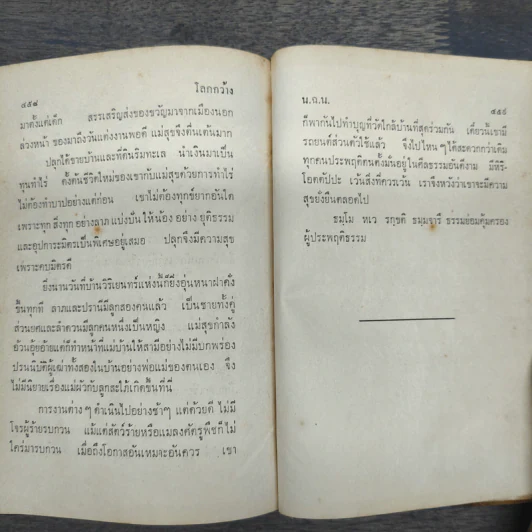 ๔๕๘
โลกกว้าง
มาตั้งแต่เด็ก สรรเสริญส่งของขวัญมาจากเมืองนอก
ล่วงหน้า ของมาถึงวันแต่งงานพอดี แม่สุขจึงตื่นเต้นมาก
ปลุกได้ขายบ้านและที่ดินริมทะเล นำเงินมาเป็น
ทุนทำไร่ ตั้งต้นชีวิตใหม่ของเขากับแม่สุขด้วยการทำไร่
ไม่ต้องทำนาอย่างแต่ก่อน เขาไม่ต้องทุกข์ยากอันใด
เพราะทุก สิ่งทุก อย่าง ลาภ แบ่งปัน ให้ น้อง อย่าง ยุติธรรม
และอุปการะมิตรเป็นพิเศษอยู่เสมอ ปลุกจึงมีความสุข
เพราะคบมิตรดี
ยิ่งนานวันที่บ้านวิริเยนทร์แห่งนี้ก็ยิ่งอุ่นหนาฝาคั่ง
ขึ้นทุกที ลาภและปรานีมีลูกสองคนแล้ว เป็นชายทั้งคู่
ส่วนยศและลำดวนมีลูกคนหนึ่งเป็นหญิง แม่สุขกำลัง
อ้วนอุ้ยอ้ายแต่ก็ทำหน้าที่แม่บ้านให้สามีอย่างไม่มีบกพร่อง
ปรนนิบัติผู้เฒ่าทั้งสองในบ้านอย่างพ่อแม่ของตนเอง จึง
ไม่มีนิยายเรื่องแม่ผัวกับลูกสะใภ้เกิดขึ้นที่นี่
การงานต่าง ๆ ดำเนินไปอย่างช้าๆ แต่ด้วยดี ไม่มี
โจรผู้ร้ายรบกวน แม้แต่สัตว์ร้ายหรือแมลงศัตรูพืชก็ไม่
ใคร่มารบกวน เมื่อถึงโอกาสอันเหมาะอันควร เขา
น.ฉ.น.
๔๕๙
ก็พากันไปทำบุญที่วัดใกล้บ้านที่สุดร่วมกัน เดี๋ยวนี้เขามี
รถยนต์ส่วนตัวใช้แล้ว จึงไปไหนๆ ได้สะดวกกว่าเดิม
ทุกคนประพฤติตนตั้งมั่นอยู่ในศีลธรรมอันดีงาม มีหิริ-
โอตตัปปะ เว้นสิ่งที่ควรเว้น เราจึงหวังว่าเขาจะมีความ
สุขยั่งยืนตลอดไป
ธมฺโม หเว รกฺขติ ธมฺมจารึ ธรรมย่อมคุ้มครอง
ผู้ประพฤติธรรม